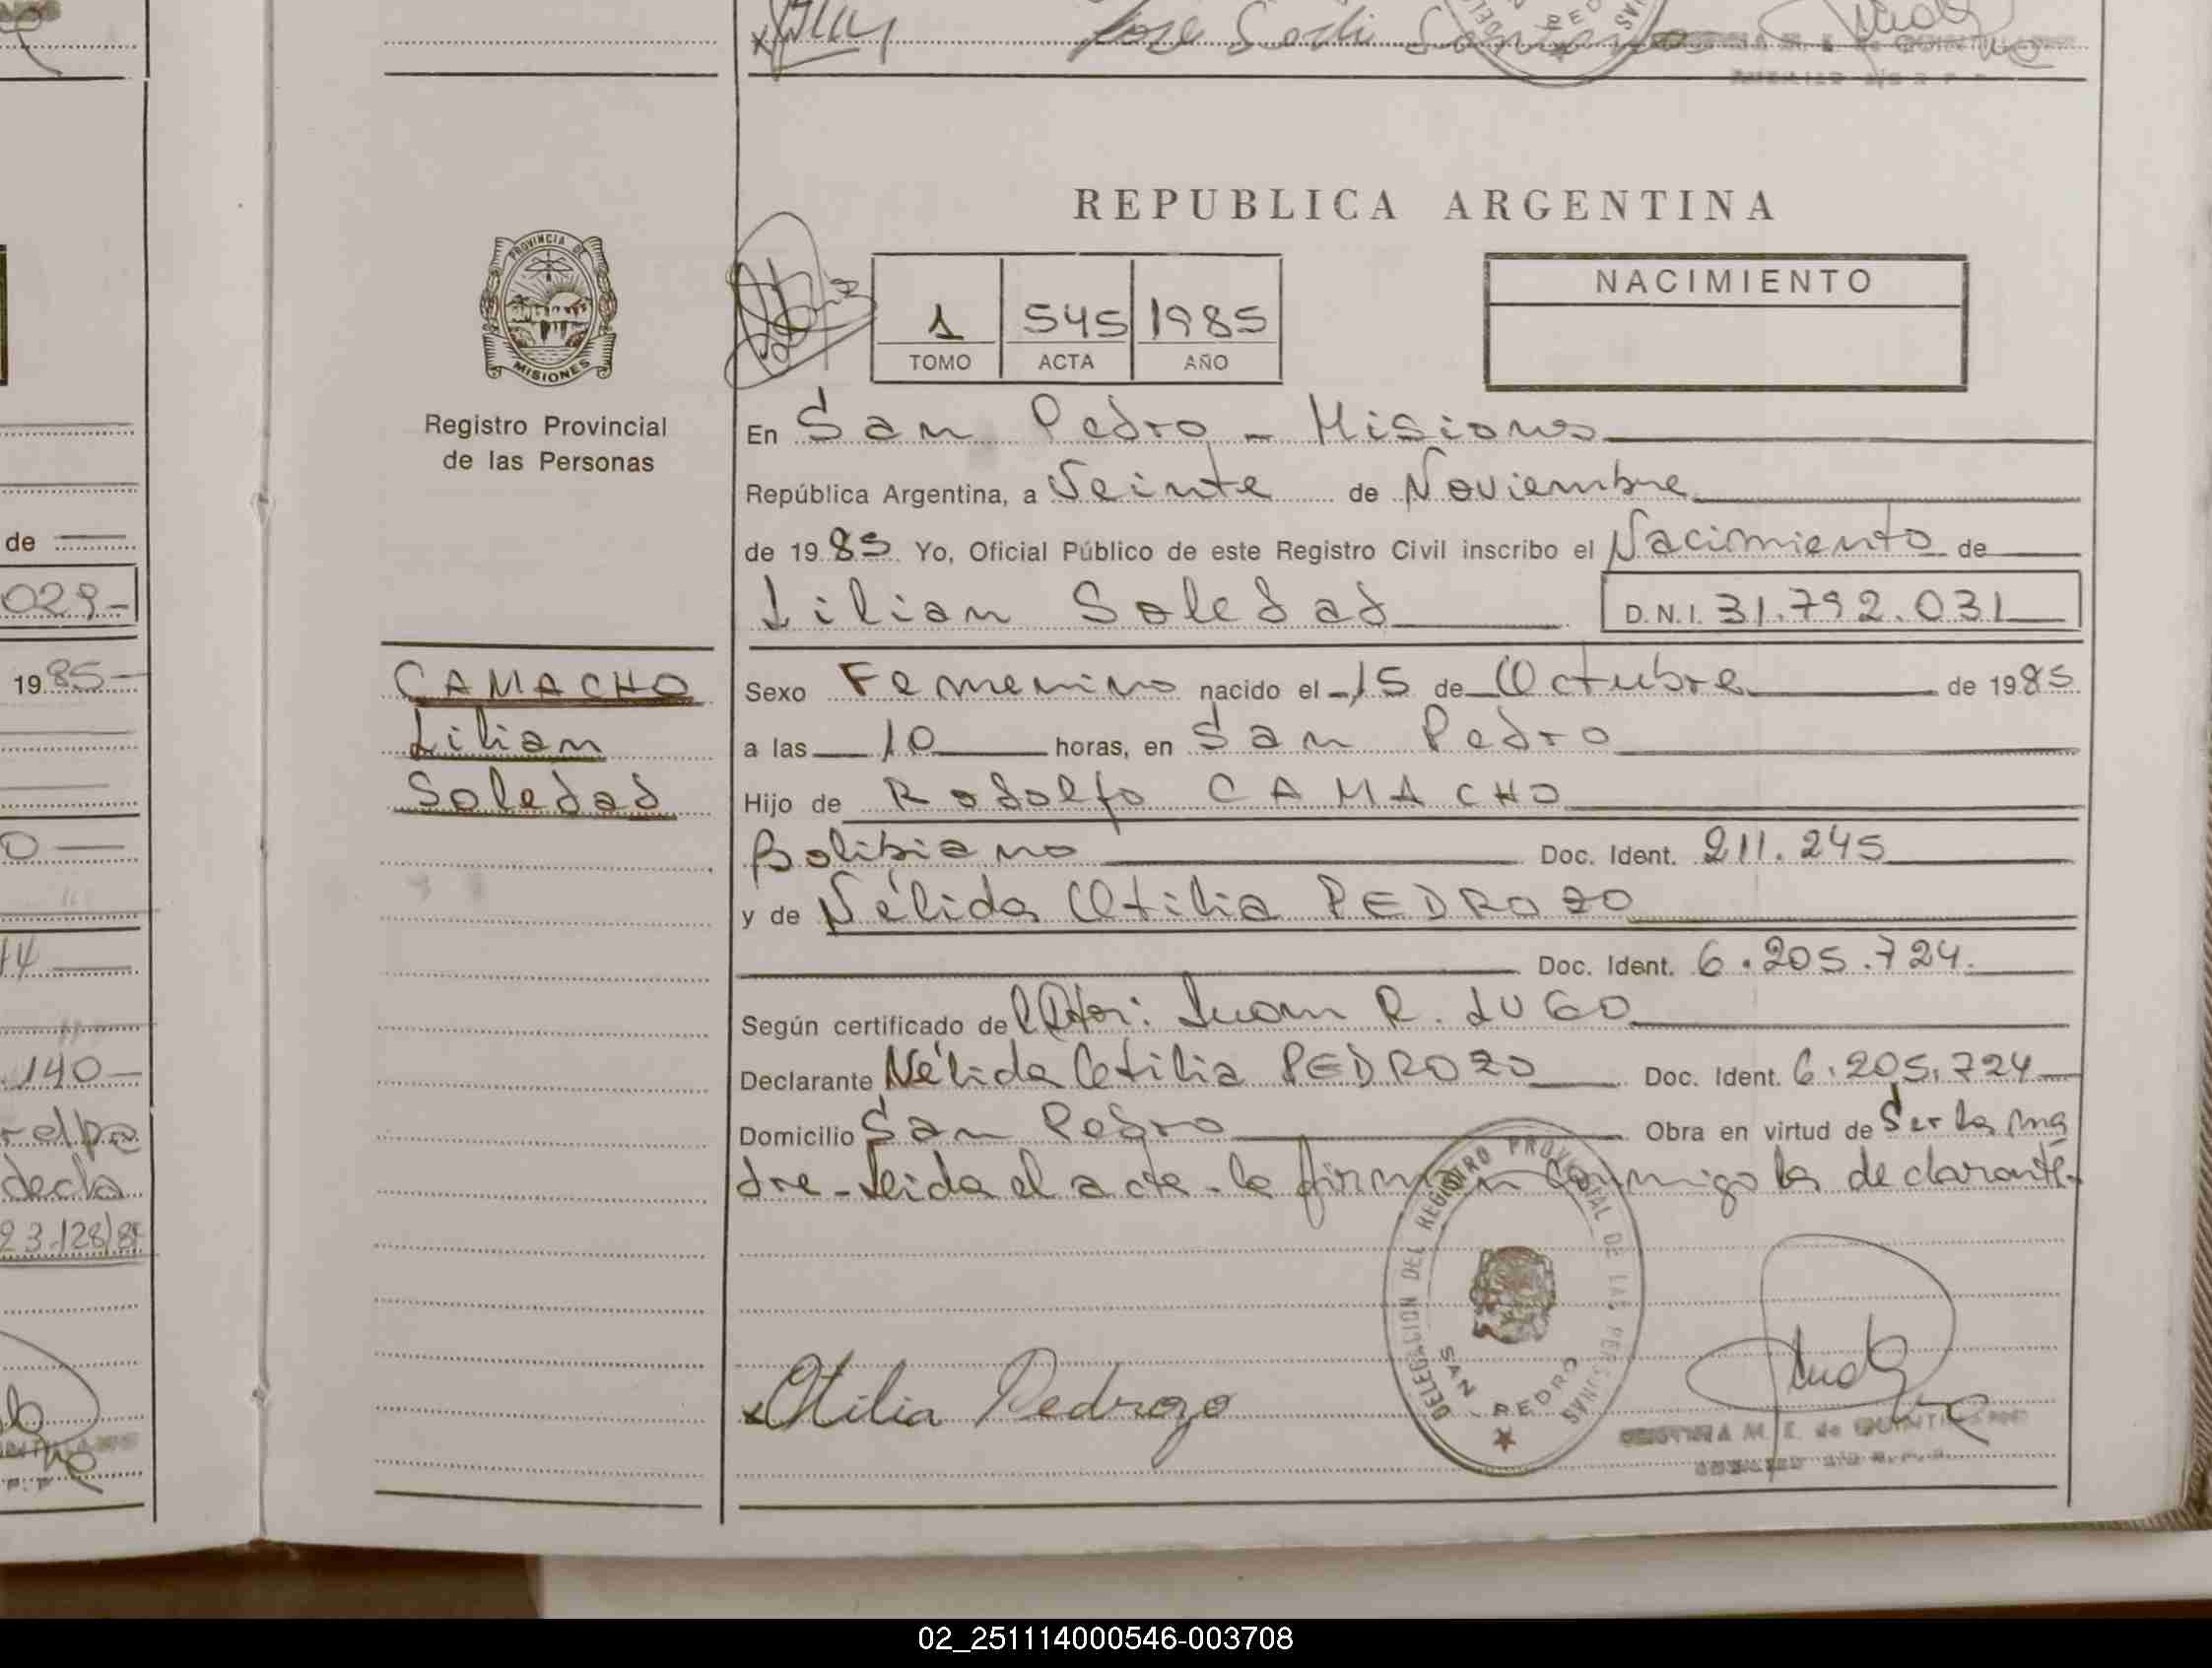 Jose
REPUBLICA ARGENTINA
PROVINCIA DE
MISIONES
Registro Provincial
de las Personas
1 545 1985
TOMO ACTA AÑO
NACIMIENTO
En San Pedro - Misiones
República Argentina, a Veinte de Noviembre
de 1985 Yo, Oficial Público de este Registro Civil inscribo el Nacimiento de
Lilian Soledad D.N.I. 31.792.031
CAMACHO
Lilian
Soledad
Sexo Femenino nacido el - 15 de Octubre de 1985
a las 10 horas, en San Pedro
Hijo de Rodolfo CAMACHO
Bolibiano Doc. Ident. 211.245
y de Nélida Otilia PEDROZO
Doc. Ident. 6.205.724.
Según certificado de Juan R. LUGO
Declarante Nélida Otilia PEDROZO Doc. Ident. 6.205.724
Domicilio San Pedro Obra en virtud de Ser la ma
dre - Leida el acta - la firman conmigo la declarante.
DELEGACION DEL REGISTRO PROVINCIAL DE LAS PERSONAS
SAN PEDRO
x Otilia Pedrozo
M. E. de QUINTILLANO
de
029-
1985-
0
44
.140-
decla
23.128/8
02_251114000546-003708